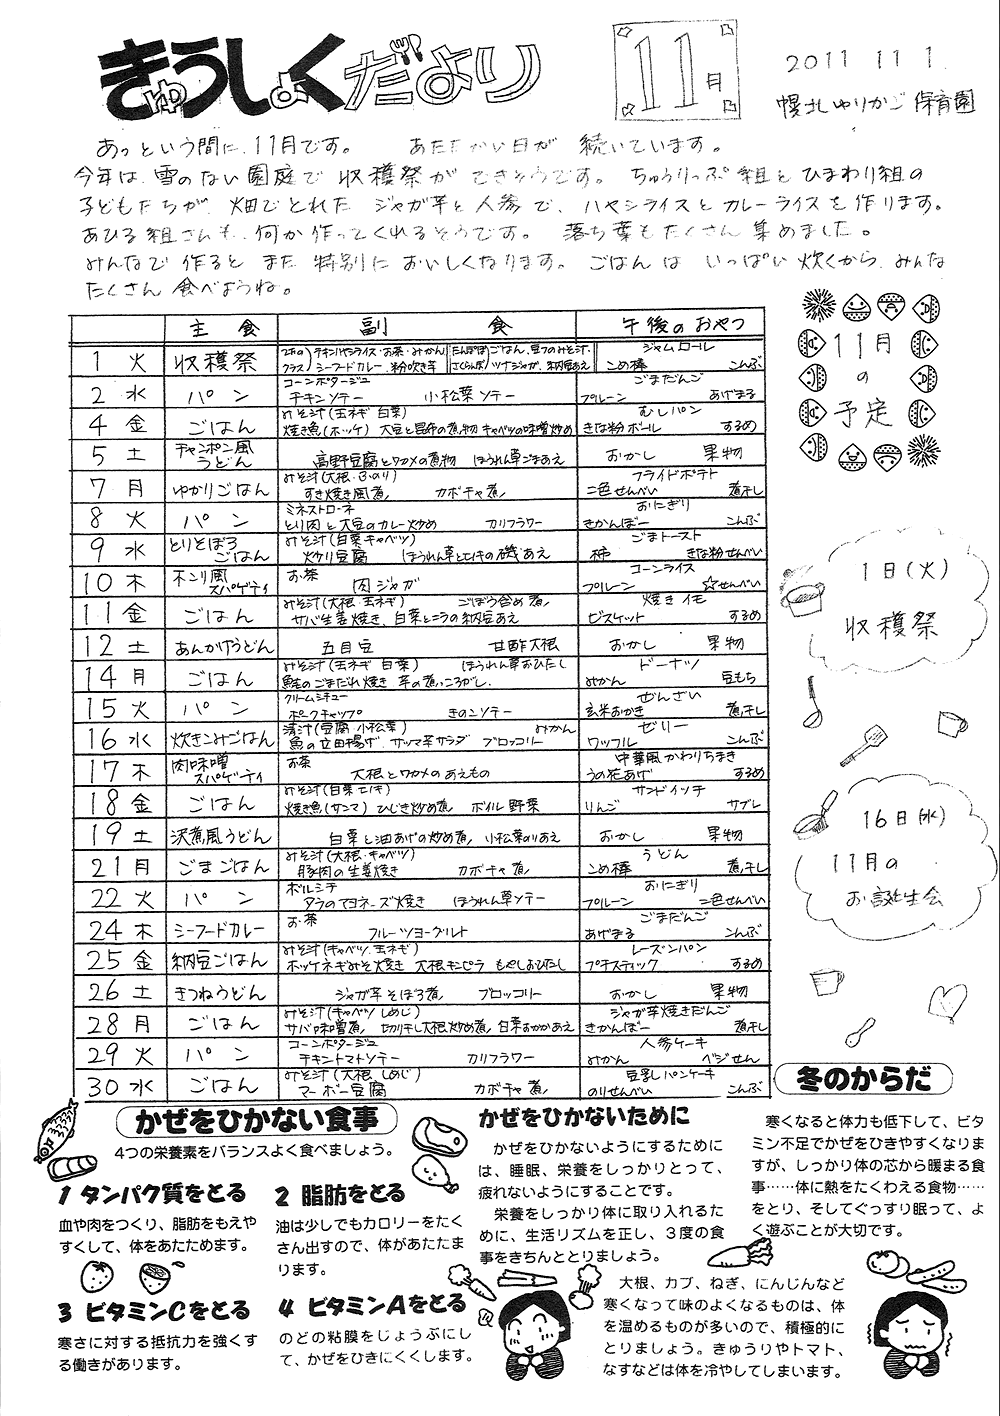 きゅうしょくだより
11月
2011 11 1.
幌北ゆりかご保育園
あっという間に、11月です。 あたたかい日が 続いています。
今年は、雪のない園庭で 収穫祭が できそうです。 ちゅうりっぷ組と ひまわり組の
子どもたちが 畑でとれた ジャガ芋と人参で、ハヤシライスと カレーライスを作ります。
あひる組さんも、何か作ってくれるそうです。 落ち葉もたくさん 集めました。
みんなで 作ると また 特別に おいしくなります。ごはんは いっぱい 炊くから、みんな
たくさん 食べようね。
主食 副食 午後のおやつ
1 火 収穫祭 2才の クラス チキンハヤシライス・お茶・みかん シーフードカレー、粉吹き芋 たんぽぽ さくらんぼ ごはん、豆フのみそ汁、ツナジャガ、納豆あえ ジャムロール こめ棒 こんぶ
2 水 パン コーンポタージュ チキンソテー 小松菜ソテー ごまだんご プルーン あげまる
4 金 ごはん みそ汁(玉ネギ 白菜) 焼き魚(ホッケ) 大豆と昆布の煮物 キャベツの味噌炒め むしパン きな粉ボール するめ
5 土 チャンポン風うどん 高野豆腐とワカメの煮物 ほうれん草ごまあえ おかし 果物
7 月 ゆかりごはん みそ汁(大根・ふのり) すき焼き風煮 カボチャ煮 フライドポテト 二色せんべい 煮干し
8 火 パン ミネストローネ とり肉と大豆のカレー炒め カリフラワー おにぎり きかんぼー こんぶ
9 水 とりそぼろごはん みそ汁(白菜キャベツ) 炒り豆腐 ほうれん草とエノキの磯あえ ごまトースト 柿 きな粉せんべい
10 木 ナポリ風スパゲティ お茶 肉ジャガ コーンライス プルーン ☆せんべい
11 金 ごはん みそ汁(大根・玉ネギ) ごぼう含め煮 サバ生姜焼き、白菜とニラの納豆あえ 焼きイモ ビスケット するめ
12 土 あんかけうどん 五目豆 甘酢大根 おかし 果物
14 月 ごはん みそ汁(玉ネギ 白菜) ほうれん草おひたし 鮭のごまだれ焼き 芋の煮ころがし ドーナツ みかん 豆もち
15 火 パン クリームシチュー ポークチャップ きのこソテー ぜんざい 玄米おかき 煮干し
16 水 炊きこみごはん 清汁(豆腐 小松菜) みかん 魚の立田揚げ サツマ芋サラダ ブロッコリー ゼリー ワッフル こんぶ
17 木 肉味噌スパゲティ お茶 大根とワカメのあえもの 中華風かわりちまき うの花あげ するめ
18 金 ごはん みそ汁(白菜エノキ) 焼き魚(サンマ) ひじき炒め煮 ボイル野菜 サンドイッチ りんご サブレ
19 土 沢煮風うどん 白菜と油あげの炒め煮 小松菜のりあえ おかし 果物
21 月 ごまごはん みそ汁(大根・キャベツ) 豚肉の生姜焼き カボチャ煮 うどん こめ棒 煮干し
22 火 パン ボルシチ タラのマヨネーズ焼き ほうれん草ソテー おにぎり プルーン 二色せんべい
24 木 シーフードカレー お茶 フルーツヨーグルト ごまだんご あげまる こんぶ
25 金 納豆ごはん みそ汁(キャベツ、玉ネギ) ホッケネギみそ焼き 大根キンピラ もやしおひたし レーズンパン プチスティック するめ
26 土 きつねうどん ジャガ芋そぼろ煮 ブロッコリー おかし 果物
28 月 ごはん みそ汁(キャベツ しめじ) サバ味噌煮、切り干し大根炒め煮、白菜おかかあえ ジャガ芋焼きだんご きかんぼー 煮干し
29 火 パン コーンポタージュ チキントマトソテー カリフラワー 人参ケーキ みかん ベジせん
30 水 ごはん みそ汁(大根、しめじ) マーボー豆腐 カボチャ煮 豆乳パンケーキ のりせんべい こんぶ
11月
の
予定
1日(火)
収穫祭
16日(水)
11月の
お誕生会
かぜをひかない食事
4つの栄養素をバランスよく食べましょう。
1 タンパク質をとる
血や肉をつくり、脂肪をもえや
すくして、体をあたためます。
2 脂肪をとる
油は少しでもカロリーをたく
さん出すので、体があたたま
ります。
3 ビタミンCをとる
寒さに対する抵抗力を強くす
る働きがあります。
4 ビタミンAをとる
のどの粘膜をじょうぶにし
て、かぜをひきにくくします。
かぜをひかないために
かぜをひかないようにするために
は、睡眠、栄養をしっかりとって、
疲れないようにすることです。
栄養をしっかり体に取り入れるた
めに、生活リズムを正し、3度の食
事をきちんととりましょう。
冬のからだ
寒くなると体力も低下して、ビタ
ミン不足でかぜをひきやすくなりま
すが、しっかり体の芯から暖まる食
事……体に熱をたくわえる食物……
をとり、そしてぐっすり眠って、よ
く遊ぶことが大切です。
大根、カブ、ねぎ、にんじんなど
寒くなって味のよくなるものは、体
を温めるものが多いので、積極的に
とりましょう。きゅうりやトマト、
なすなどは体を冷やしてしまいます。